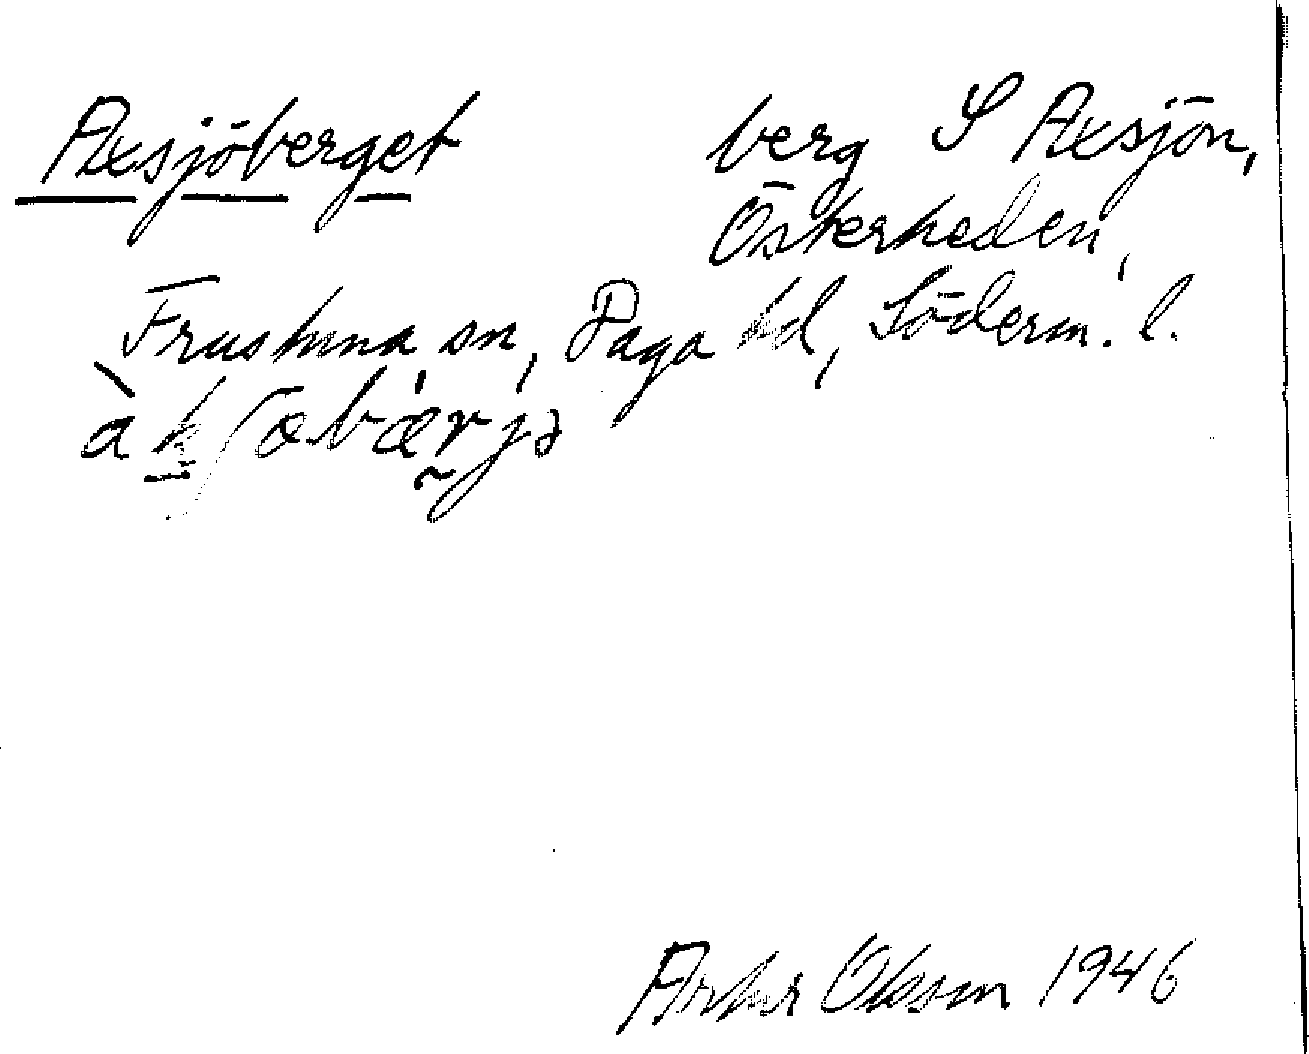 Axsjöberget berg S Axsjön,
Österheden,
Frustuna sn, Daga hd, Söderm. l.
àkʃøbæ̀rjə
Artur Olsson 1946